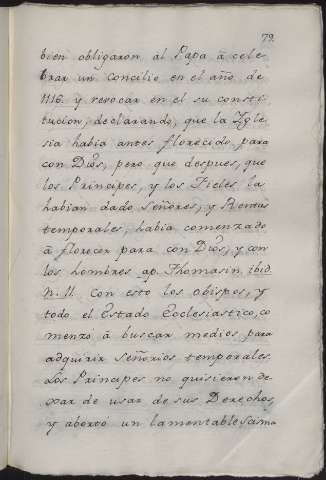 79.
bien obligaron al Papa â cele-
brar un Concilio en el año de
1116. y revocar en el su consti-
tucion, declarando, que la Ygle-
sia habia antes florecido para
con Dios, pero que despues, que
los Principes, y los Fieles la
habian dado Señores, y Rentas
temporales, habia comenzado
â florecer para con Dios, y con
los hombres ap. Thomasin. ibid.
n. 11. Con esto los obispos, y
todo el Estado Ecclesiastico, co
menzo â buscar medios para
adquirir señorios temporales.
Los Principes no quisieron de-
xar de usar de sus Derechos,
y abortó un lamentable scisma